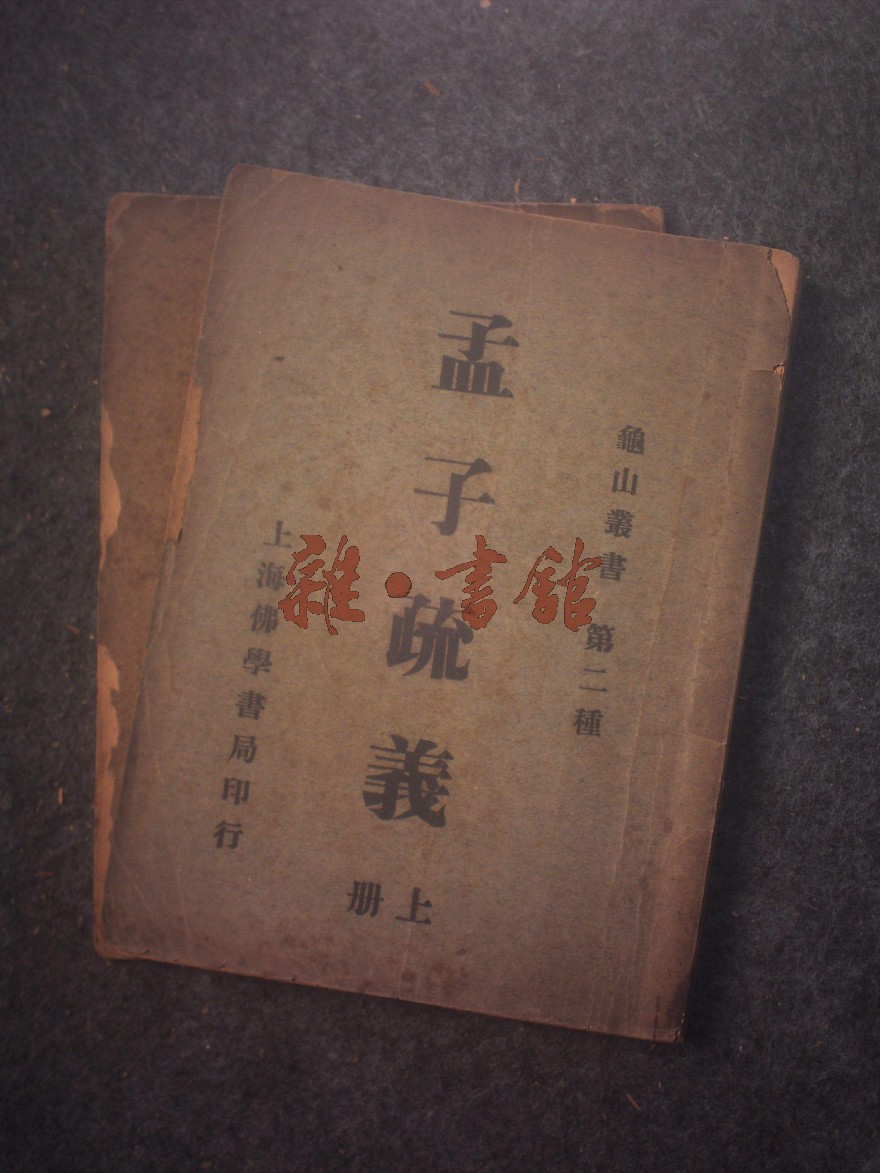 龜山叢書 第二種
孟子疏義
上册
上海佛學書局印行
雜·書館